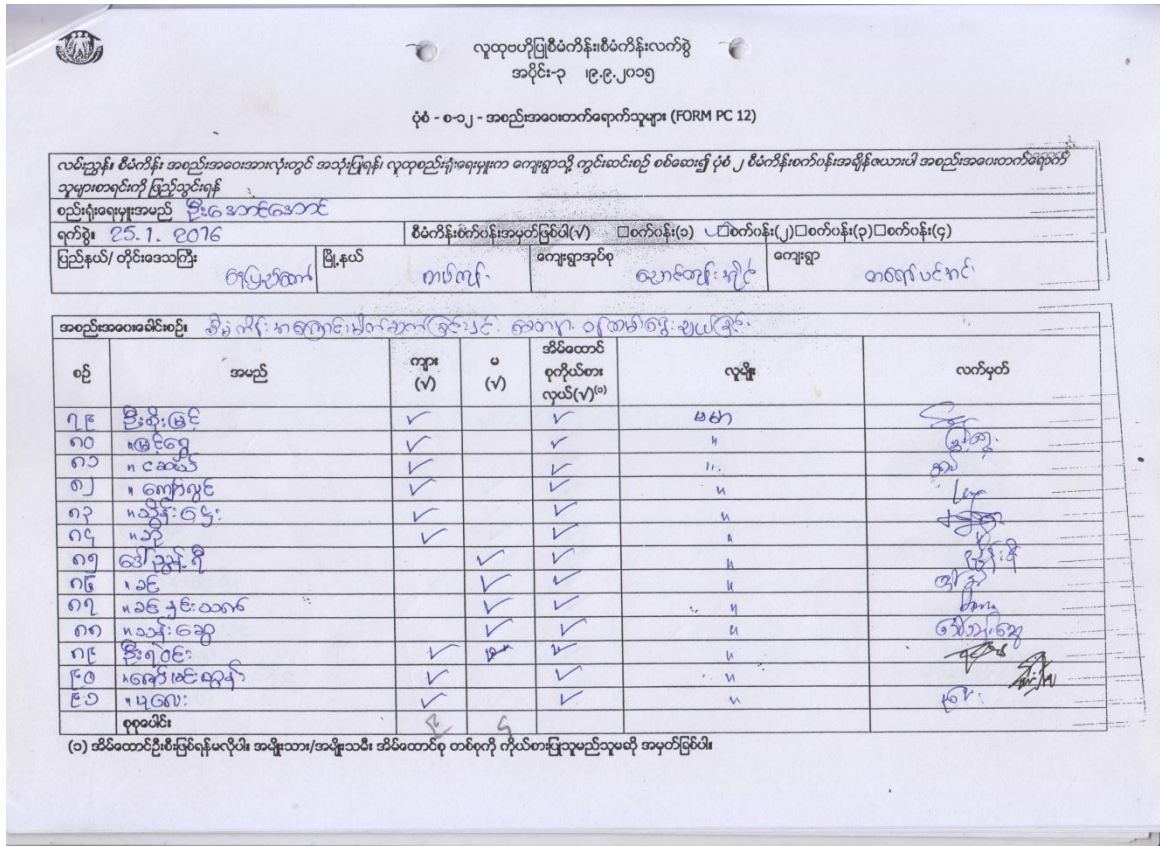 လူထုဗဟိုပြုစီမံကိန်း၊စီမံကိန်းလက်စွဲ
အပိုင်း-၃ ၊၉.၉.၂၀၁၅
ပုံစံ - စ-၁၂ - အစည်းအဝေးတက်ရောက်သူများ (FORM PC 12)
လမ်းညွှန်။ စီမံကိန်း အစည်းအဝေးအားလုံးတွင် အသုံးပြုရန်၊ လူထုစည်းရုံးရေးမှူးက ကျေးရွာသို့ ကွင်းဆင်းစဉ် စစ်ဆေး၍ ပုံစံ ၂ စီမံကိန်းစက်ဝန်းအချိန်ဇယားပါ အစည်းအဝေးတက်ရောက်
သူများစာရင်းကို ဖြည့်သွင်းရန်
စည်းရုံးရေးမှူးအမည် ဦးအောင်အောင်
ရက်စွဲ။ 25.1.2016 စီမံကိန်းစက်ဝန်းအမှတ်ခြစ်ပါ(√) □စက်ဝန်း(၁) ✓□စက်ဝန်း(၂)□စက်ဝန်း(၃)□စက်ဝန်း(၄)
ပြည်နယ်/ တိုင်းဒေသကြီး နေပြည်တော် မြို့နယ် တပ်ကုန်း ကျေးရွာအုပ်စု ကျေးရွာ
အစည်းအဝေးခေါင်းစဉ်။ စီမံကိန်းအကြောင်းမိတ်ဆက်ခြင်းနှင့် စေတနာ့ဝန်ထမ်းရွေးချယ်ခြင်း
စဉ် အမည် ကျား (√) မ (√) အိမ်ထောင်စုကိုယ်စားလှယ်(√)⁽¹⁾ လူမျိုး လက်မှတ်
၇၉ ဦးစိုးမြင့် ✓ ✓ ဗမာ
၈၀ "မြင့်ရွှေ ✓ ✓ "
၈၁ "ငဆယ် ✓ ✓ "
၈၂ "ကျော်လွင် ✓ ✓ "
၈၃ "သိန်းဌေး ✓ ✓ "
၈၄ "ဘို ✓ ✓ "
၈၅ ဒေါ်ညွန့်ရီ ✓ ✓ "
၈၆ "ခင် ✓ ✓ "
၈၇ "ခင်နှင်းသက် ✓ ✓ "
၈၈ "သန်းဆွေ ✓ ✓ " ဒေါ်သန်းဆွေ
၈၉ ဦးရဲဝင်း ✓ ✓ "
၉၀ "ဇော်မင်းထွန်း ✓ ✓ "
၉၁ "ပုလေး ✓ ✓ "
စုစုပေါင်း ၉ ၄
(၁) အိမ်ထောင်ဦးစီးဖြစ်ရန်မလိုပါ။ အမျိုးသား/အမျိုးသမီး အိမ်ထောင်စု တစ်စုကို ကိုယ်စားပြုသူမည်သူမဆို အမှတ်ခြစ်ပါ။